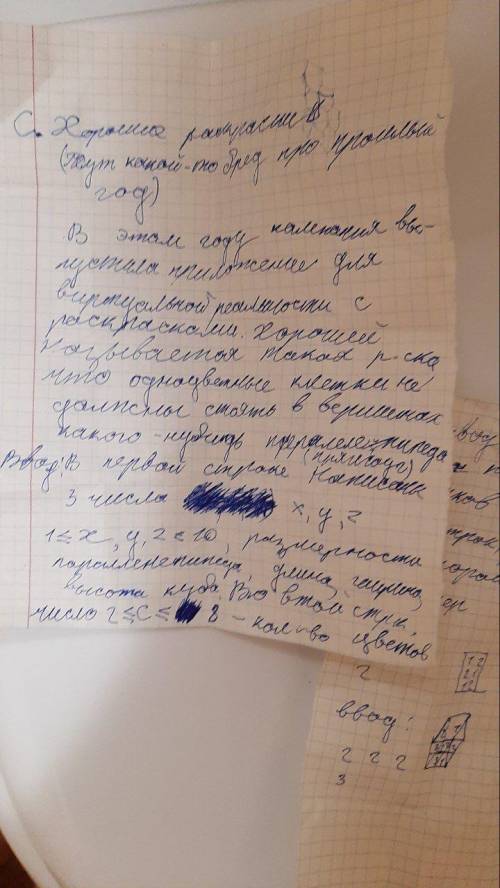 С. Хорошие раскраски
(Тут какой-то бред про прошлый
год)
В этом году компания вы-
пустила приложение для
виртуальной реальности с
раскрасками. Хорошей
называется такая р-ска
что одноцветные клетки не
должны стоять в вершинах
какого-нибудь
(прямоуг)
Ввод: В первой строке написаны
3 числа x, y, z
1 ≤ x, y, z ≤ 10, размерности
длина,
высота куба. Во второй
число 2 ≤ C ≤ 8 - кол-во цветов
2
ввод:
2 2 2
3